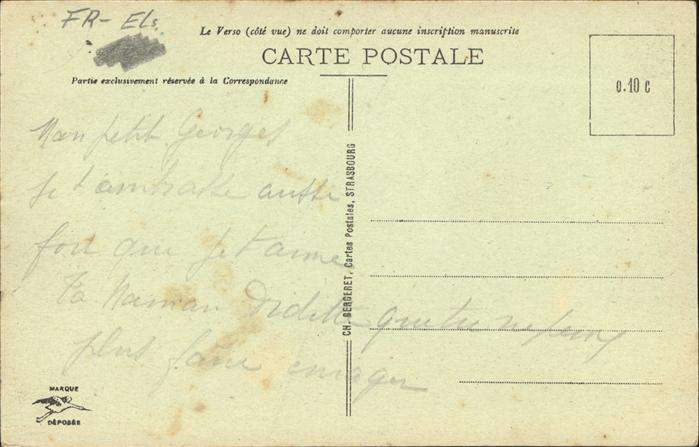 FR- Els.
Le Verso (côté vue) ne doit comporter aucune inscription manuscrite
CARTE POSTALE
Partie exclusivement réservée à la Correspondance
0.10 c
Mon petit Georges
je t'embrasse aussi
fort que je t'aime
Ta Maman Odette
plus faire enrager
CH. BERGERET, Cartes Postales, STRASBOURG
MARQUE
DÉPOSÉE